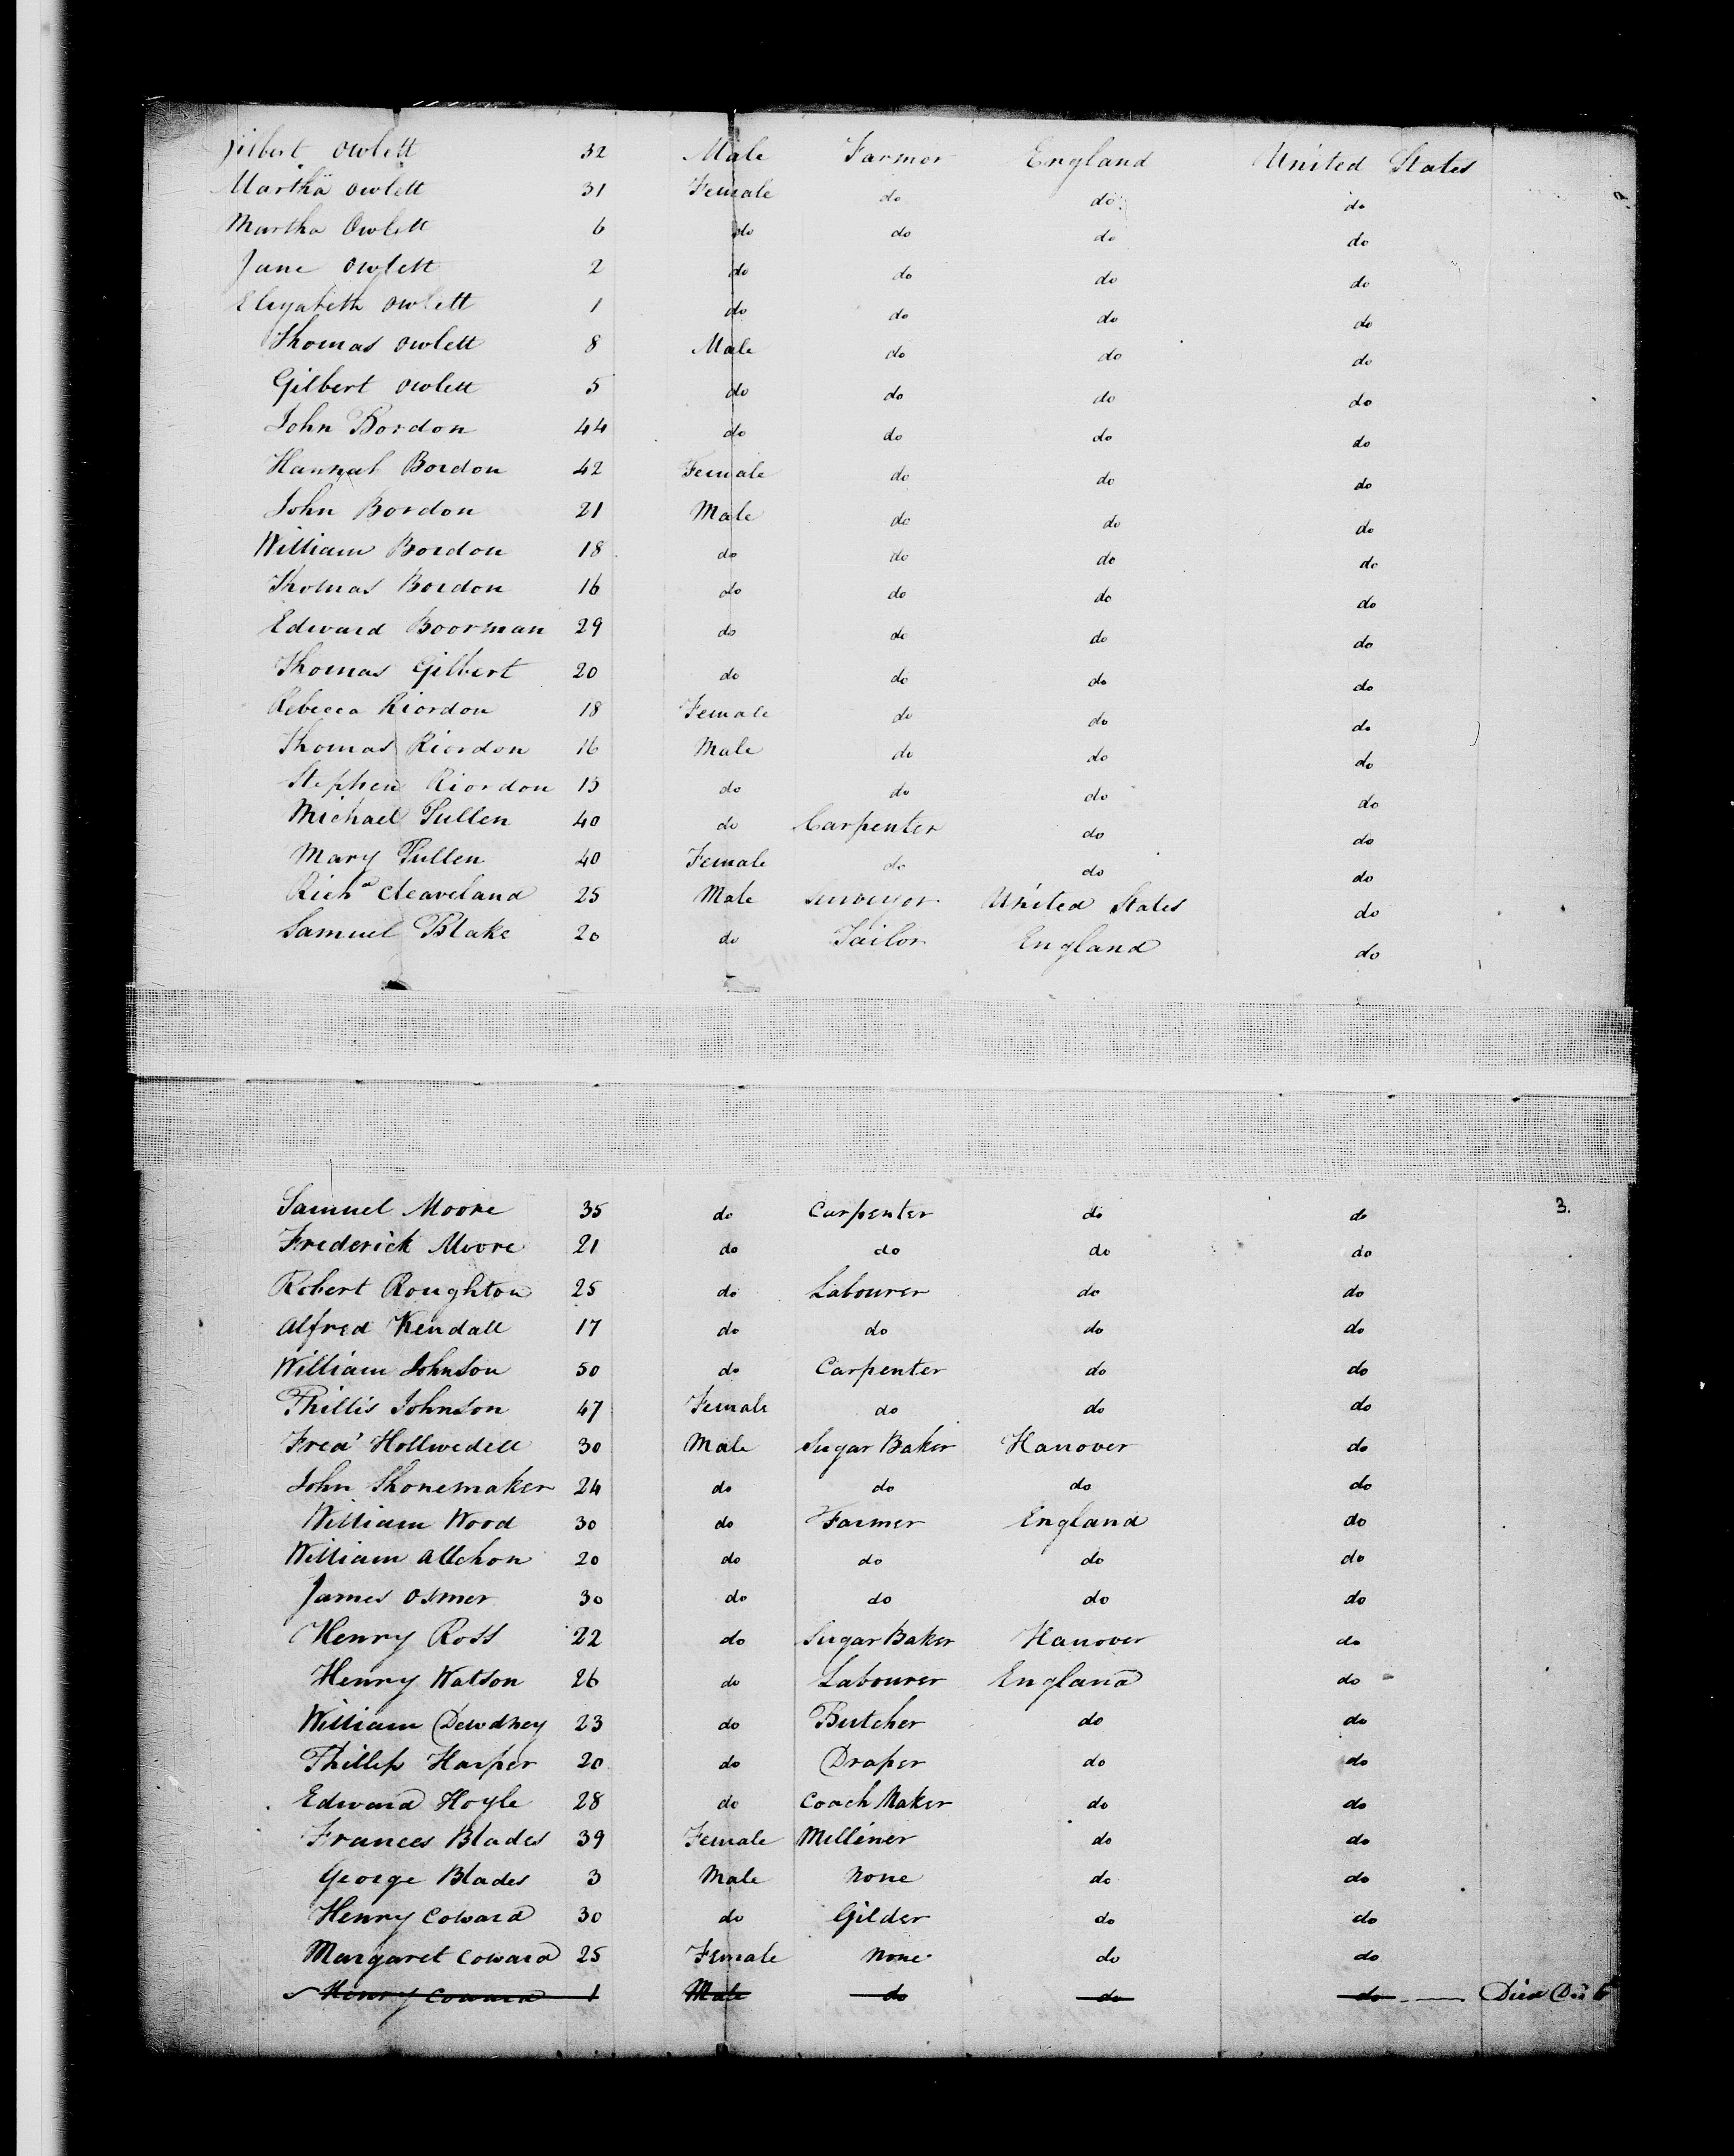 Gilbert Owlett 32 Male Farmer England United States
Martha Owlett 31 Female do do do
Martha Owlett 6 do do do do
Jane Owlett 2 do do do do
Elizabeth Owlett 1 do do do do
Thomas Owlett 8 Male do do do
Gilbert Owlett 5 do do do do
John Bordon 44 do do do do
Hannah Bordon 42 Female do do do
John Bordon 21 Male do do do
William Bordon 18 do do do do
Thomas Bordon 16 do do do do
Edward Boorman 29 do do do do
Thomas Gilbert 20 do do do do
Rebecca Riordon 18 Female do do do
Thomas Riordon 16 Male do do do
Stephen Riordon 15 do do do do
Michael Pullen 40 do Carpenter do do
Mary Pullen 40 Female do do do
Richd Cleaveland 25 Male Surveyor United States do
Samuel Blake 20 do Tailor England do
Samuel Moore 35 do Carpenter do do 3.
Frederick Moore 21 do do do do
Robert Roughton 25 do Labourer do do
Alfred Kendall 17 do do do do
William Johnson 50 do Carpenter do do
Phillis Johnson 47 Female do do do
Fredk Hollwedell 30 Male Sugar Baker Hanover do
John Shonemaker 24 do do do do
William Wood 30 do Farmer England do
William Allchon 20 do do do do
James Osmer 30 do do do do
Henry Ross 22 do Sugar Baker Hanover do
Henry Watson 26 do Labourer England do
William Dewdney 23 do Butcher do do
Phillip Harper 20 do Draper do do
Edward Hoyle 28 do Coach Maker do do
Frances Blades 39 Female Milliner do do
George Blades 3 Male None do do
Henry Coward 30 do Gilder do do
Margaret Coward 25 Female None do do
Henry Coward 1 Male do do do Died